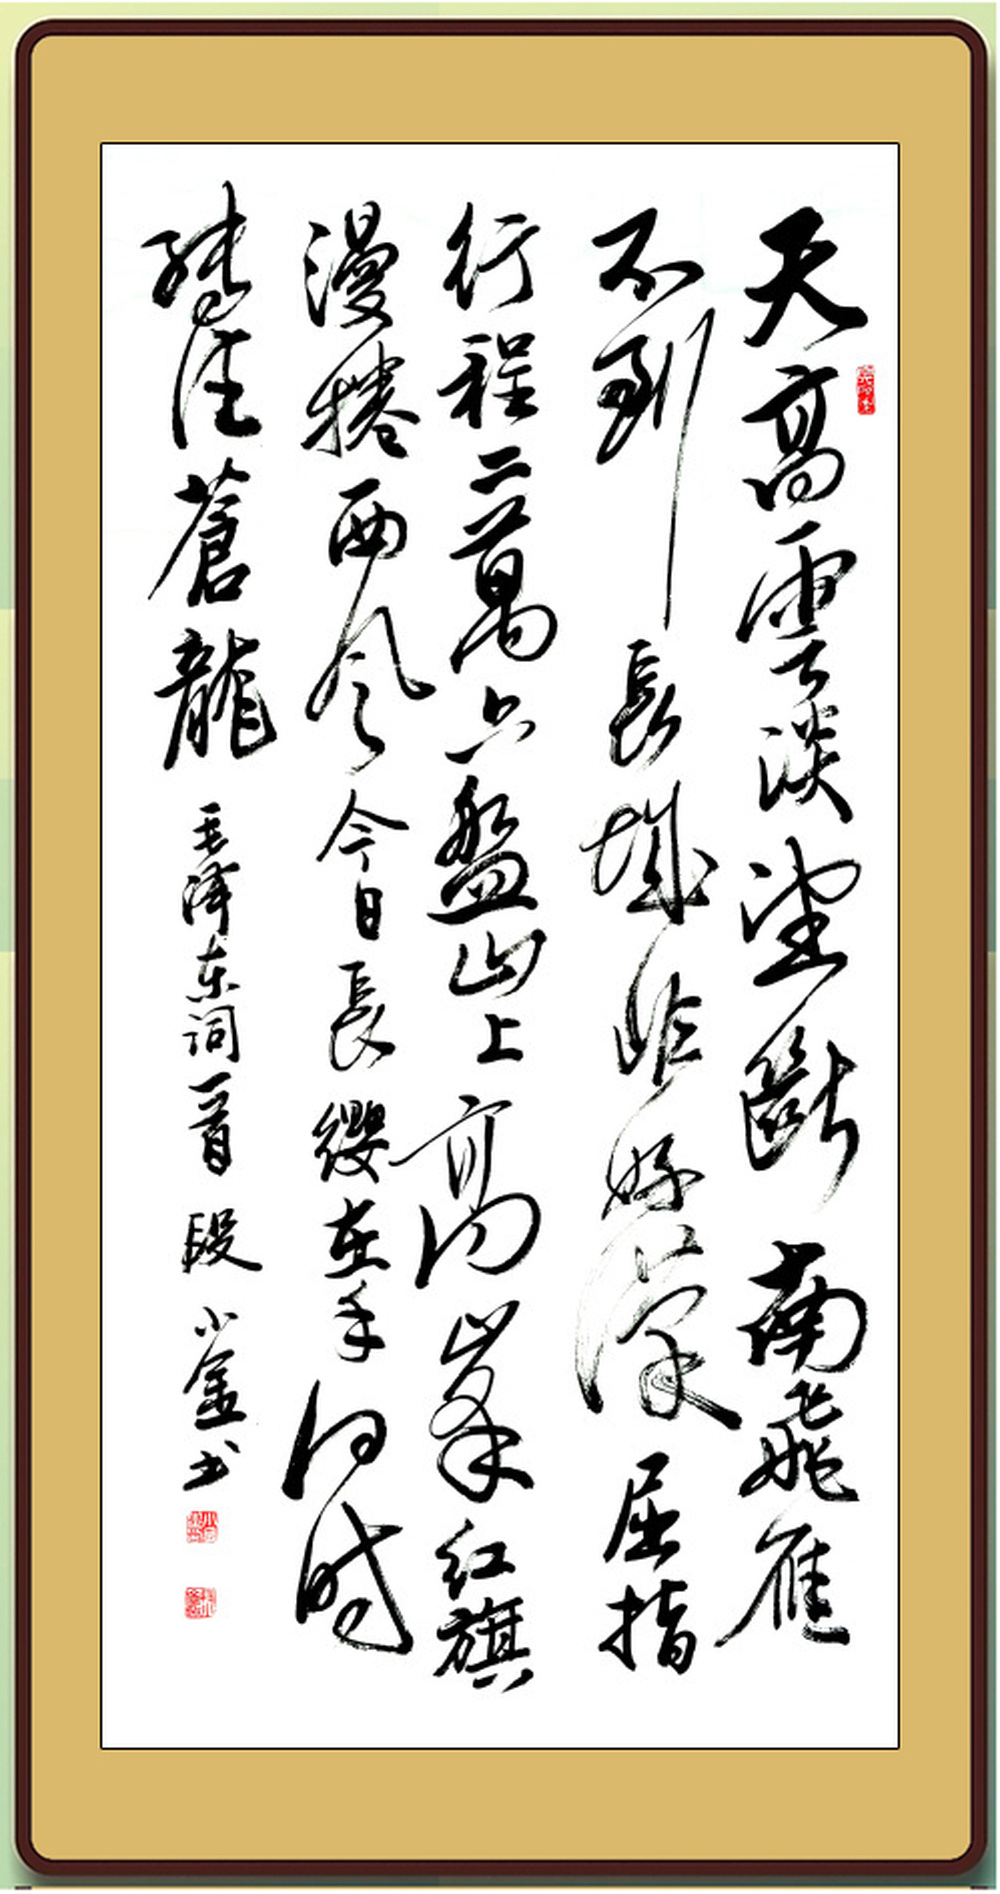 天高雲淡望斷南飛雁
不到長城非好漢屈指
行程二萬六盤山上高峯红旗
漫捲西风今日長纓在手何时
缚住蒼龍 毛泽东词一首 段小金书